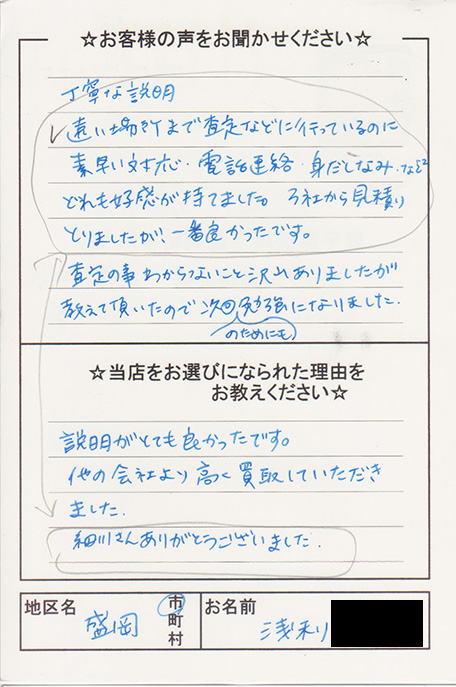 ☆お客様の声をお聞かせください☆
丁寧な説明
遠い場所まで査定などに行っているのに
素早い対応・電話連絡・身だしなみ・など
どれも好感が持てました。3社から見積り
とりましたが、一番良かったです。
査定の事わからないこと沢山ありましたが
教えて頂いたので次回勉強になりました.
のためにも
☆当店をお選びになられた理由を
お教えください☆
説明がとても良かったです。
他の会社より高く買取していただき
ました.
細川さんありがとうございました.
地区名 盛岡 市町村 お名前 浅利